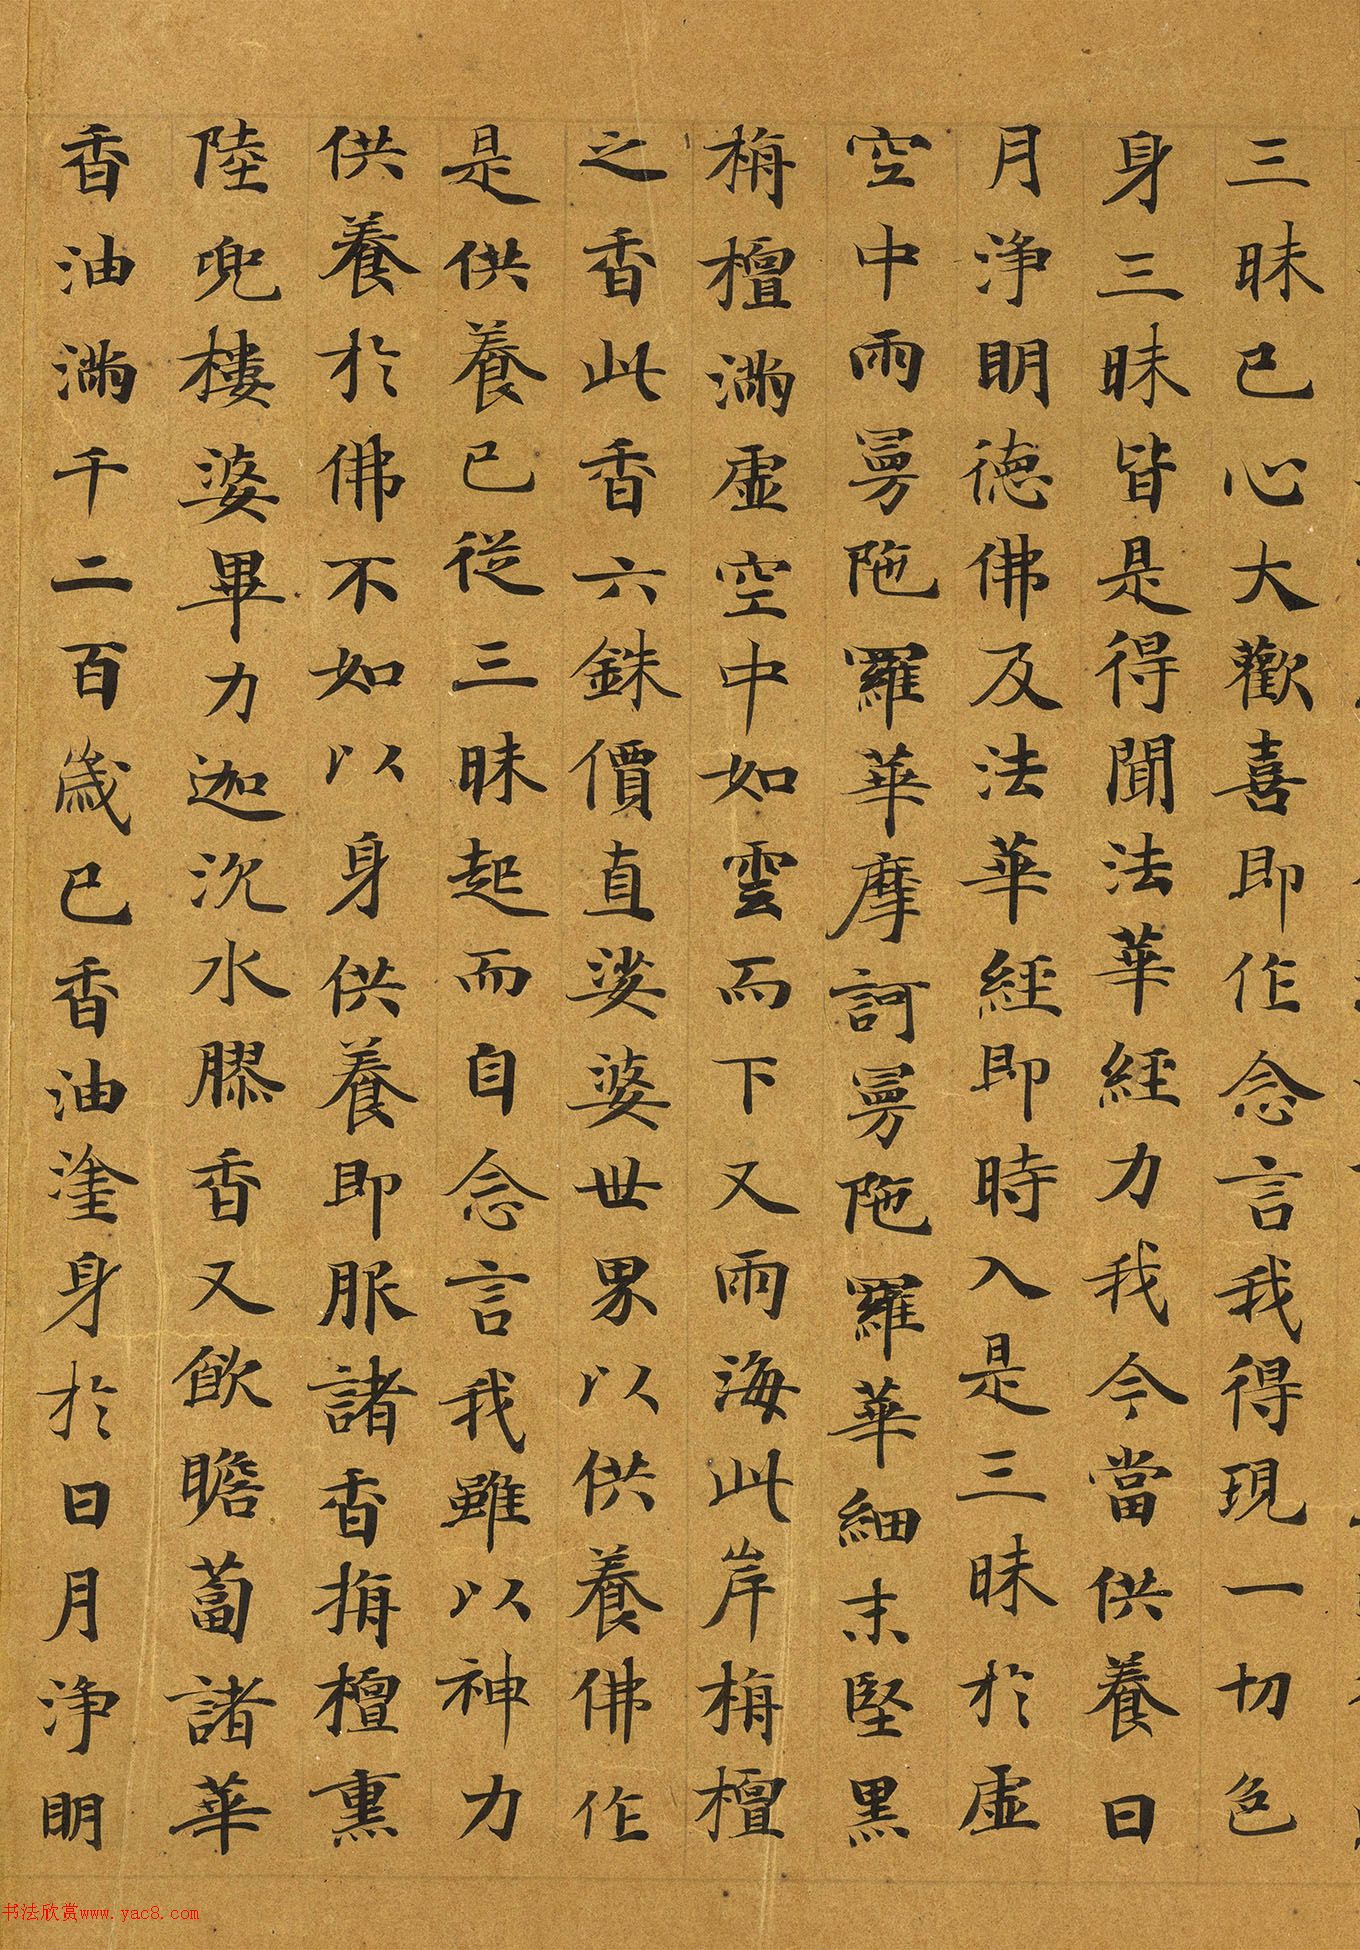 三昧已心大歡喜即作念言我得現一切色
身三昧皆是得聞法華經力我今當供養日
月淨明德佛及法華經即時入是三昧於虛
空中雨曼陁羅華摩訶曼陁羅華細末堅黑
栴檀滿虛空中如雲而下又雨海此岸栴檀
之香此香六銖價直娑婆世界以供養佛作
是供養已從三昧起而自念言我雖以神力
供養於佛不如以身供養即服諸香栴檀熏
陸兜樓婆畢力迦沉水膠香又飲瞻蔔諸華
香油滿千二百歲已香油塗身於日月淨明
书法欣赏www.yac8.com